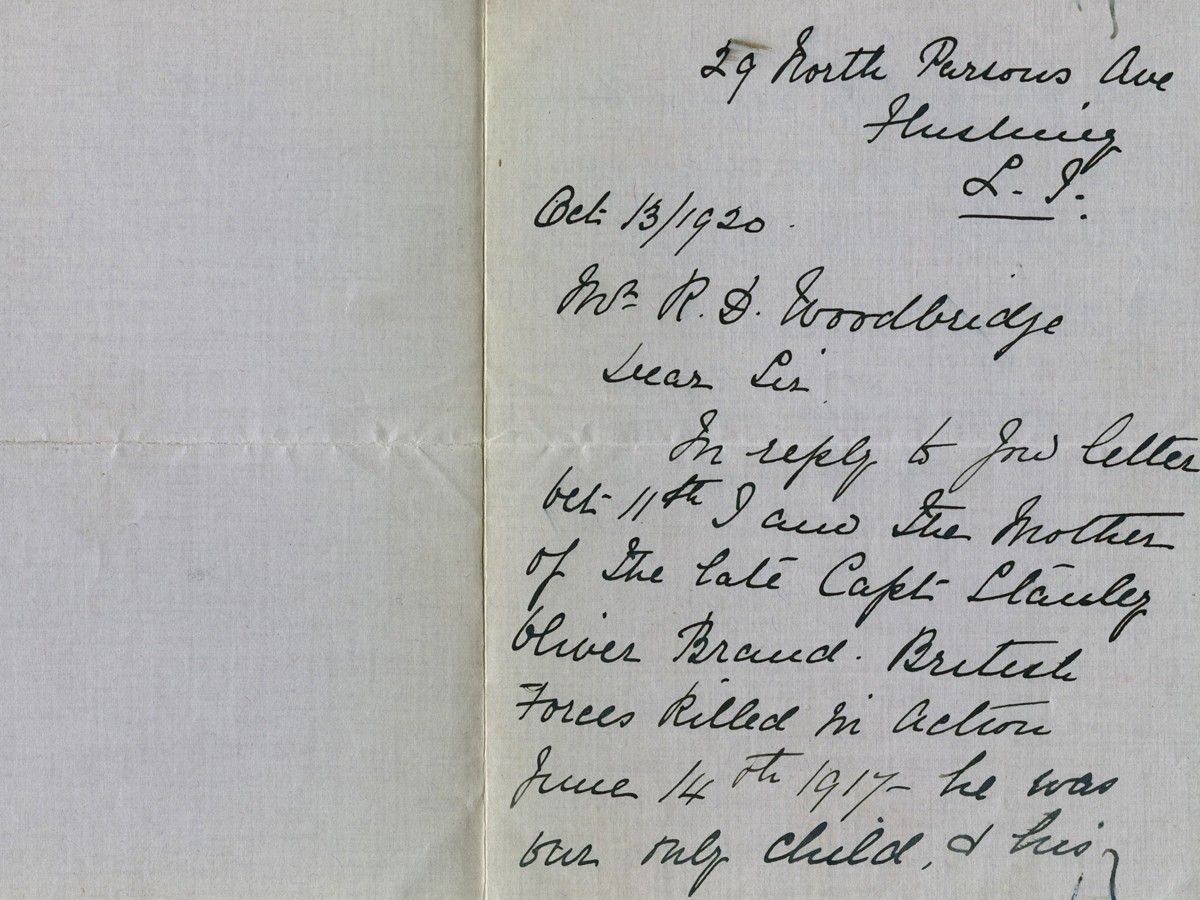 29 North Parsons Ave
Flushing
L. I.
Oct 13/1920.
Mr R. D. Woodbridge
Dear Sir
In reply to your letter
Oct 11th I am the Mother
of the late Capt Stanley
Oliver Brand. British
Forces Killed in action
June 14th 1917 - he was
our only child, & his